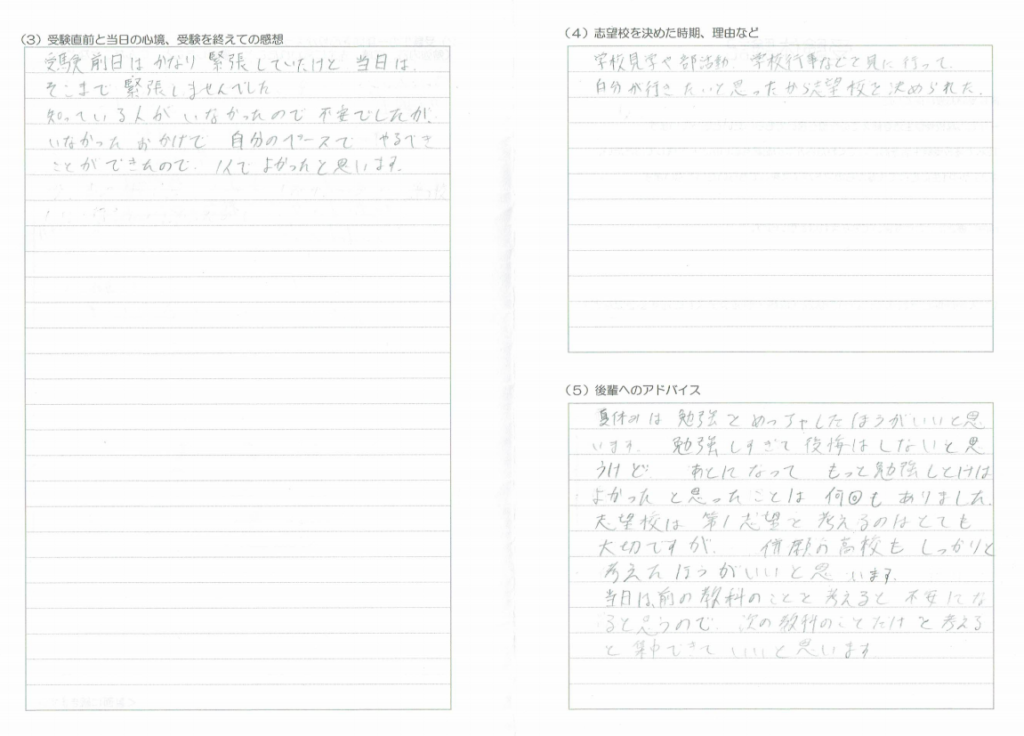 （3）受験直前と当日の心境、受験を終えての感想
受験前日はかなり緊張していたけど当日は、
そこまで緊張しませんでした
知っている人がいなかったので不安でしたが、
いなかったおかげで自分のペースでやるべき
ことができたので、1人でよかったと思います。
（4）志望校を決めた時期、理由など
学校見学や部活動、学校行事などを見に行って、
自分が行きたいと思ったから志望校を決められた。
（5）後輩へのアドバイス
夏休みは勉強をめっちゃしたほうがいいと思
います。勉強しすぎて後悔はしないと思
うけど、あとになってもっと勉強しとけば
よかったと思ったことは何回もありました。
志望校は第1志望を考えるのはとても
大切ですが、併願の高校もしっかりと
考えたほうがいいと思います。
当日は、前の教科のことを考えると不安にな
ると思うので、次の教科のことだけを考える
と集中できていいと思います